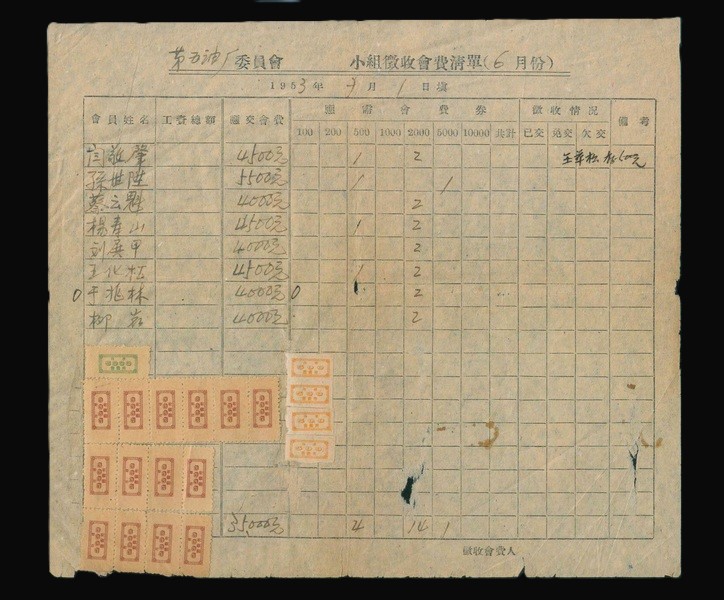 第五油厂委員會 小組徵收會費清單(6月份)
1953年 月1日填
會員姓名 工資總額 應交會費 應需會費券 徵收情況 備考
100 200 500 1000 2000 5000 10000 共計 已交 免交 欠交
4500元 1 2
孫世陞 5500元 1 1
蔡云魁 4000元 2
楊春山 4500元 1 2
劉興甲 4000元 2
王化松 4500元 1 2
0 于兆林 4000元 0 2
柳 4000元 2
35000元 4 14 1
徵收會費人